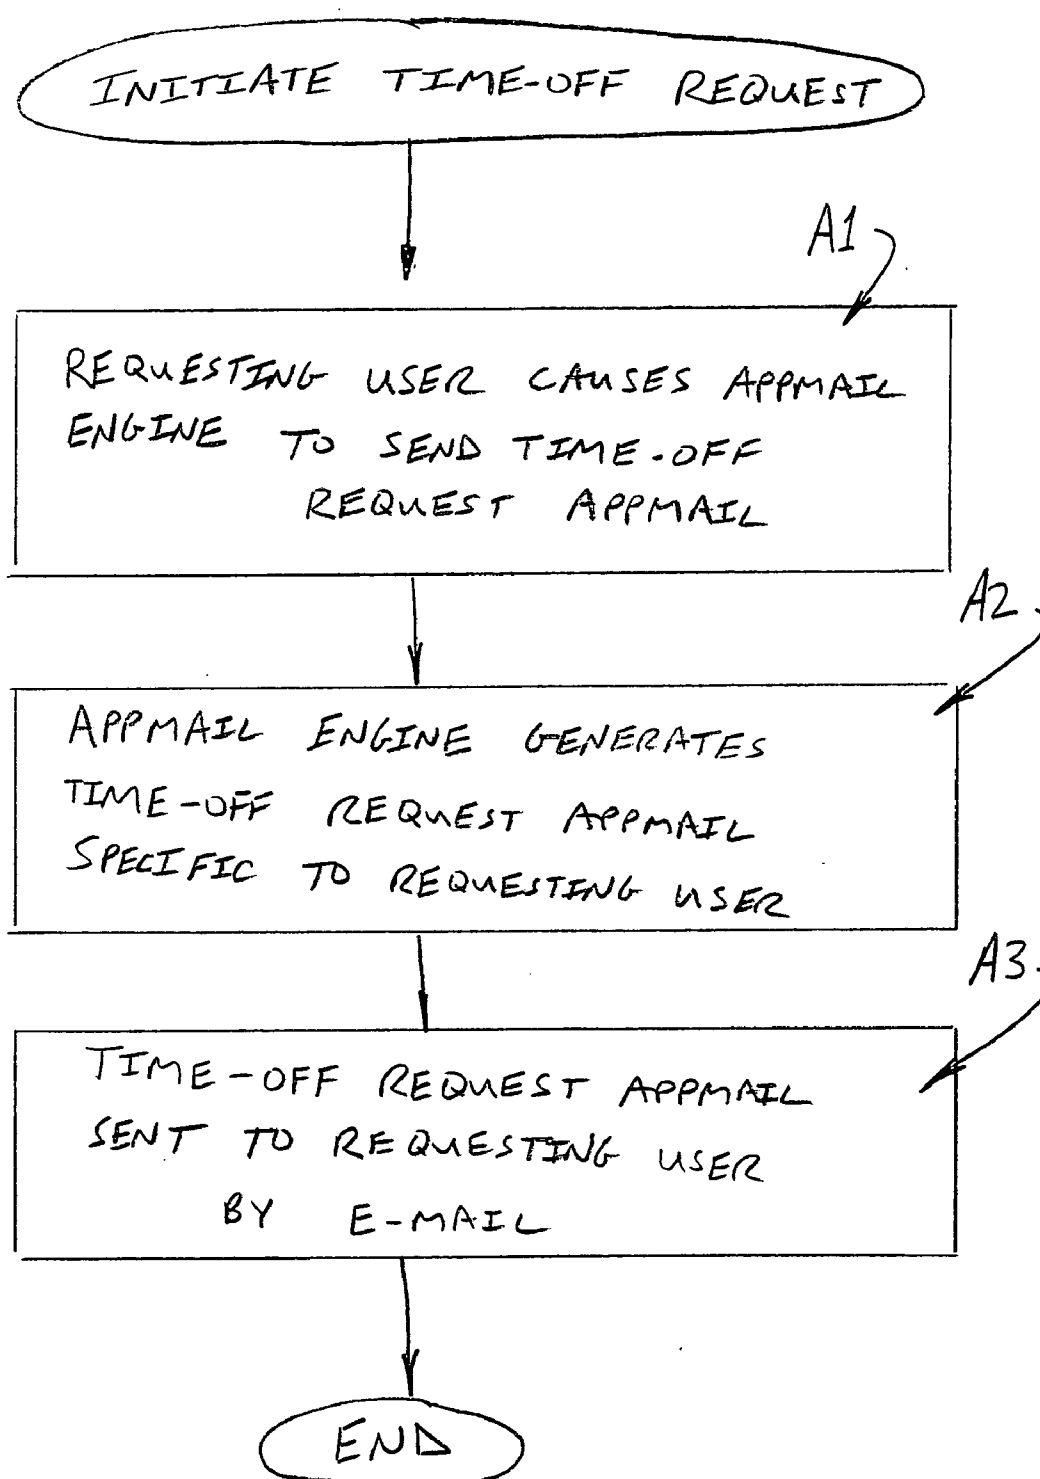 INITIATE TIME-OFF REQUEST
A1
REQUESTING USER CAUSES APPMAIL
ENGINE TO SEND TIME-OFF
REQUEST APPMAIL
A2
APPMAIL ENGINE GENERATES
TIME-OFF REQUEST APPMAIL
SPECIFIC TO REQUESTING USER
A3
TIME-OFF REQUEST APPMAIL
SENT TO REQUESTING USER
BY E-MAIL
END